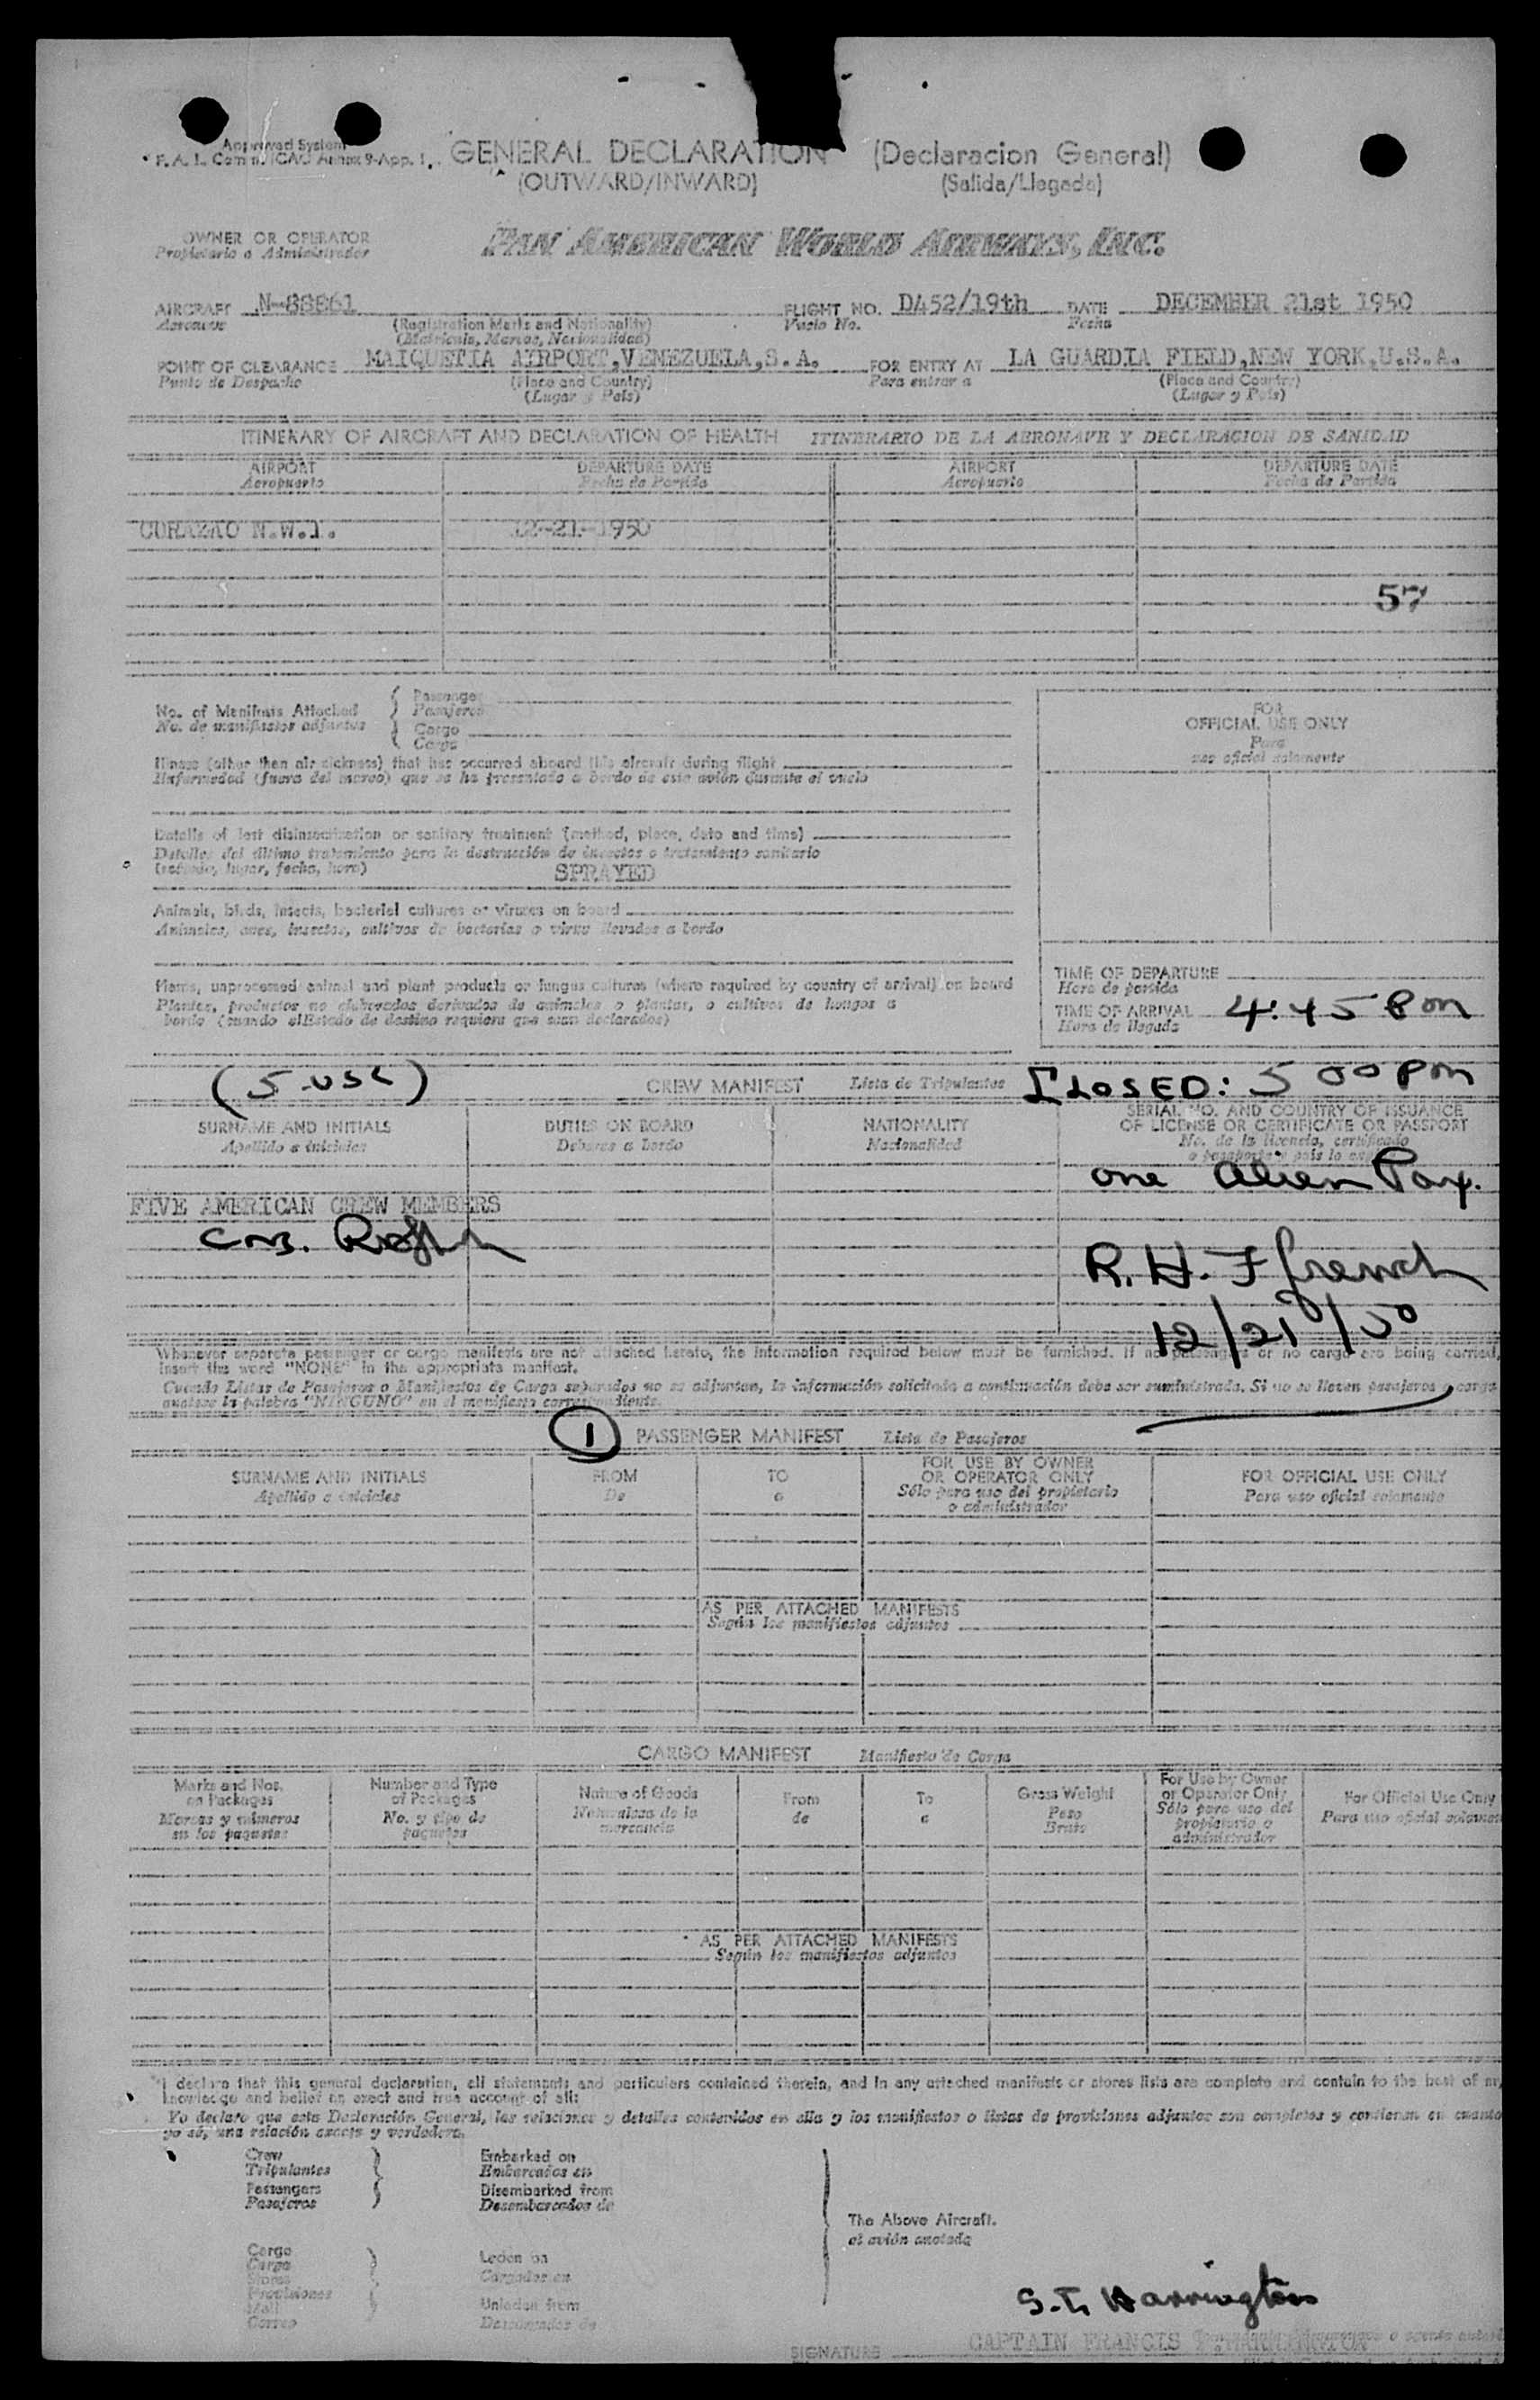 Approved System
F. A. L. Comm. ICAO Annex 9-App. 1.
GENERAL DECLARATION (Declaracion General)
(OUTWARD/INWARD) (Salida/Llegada)
OWNER OR OPERATOR
Propietario o Administrador
PAN AMERICAN WORLD AIRWAYS, INC.
AIRCRAFT N-88861 FLIGHT NO. DA52/19th DATE DECEMBER 21st 1950
Aeronave (Registration Marks and Nationality) Vuelo No. Fecha
(Matricula, Marcas, Nacionalidad)
POINT OF CLEARANCE MAIQUETIA AIRPORT,VENEZUELA,S.A. FOR ENTRY AT LA GUARDIA FIELD,NEW YORK,U.S.A.
Punto de Despacho (Place and Country) Para entrar a (Place and Country)
(Lugar y Pais) (Lugar y Pais)
ITINERARY OF AIRCRAFT AND DECLARATION OF HEALTH ITINERARIO DE LA AERONAVE Y DECLARACION DE SANIDAD
AIRPORT DEPARTURE DATE AIRPORT DEPARTURE DATE
Aeropuerto Fecha de Partida Aeropuerto Fecha de Partida
CURAZAO N.W.I. 12-21-1950
57
No. of Manifests Attached { Passenger
No. de manifiestos adjuntos Pasajeros
Cargo
Carga
FOR
OFFICIAL USE ONLY
Para
uso oficial solamente
Illness (other than air sickness) that has occurred aboard this aircraft during flight
Enfermedad (fuera del mareo) que se ha presentado a bordo de este avión durante el vuelo
Details of last disinsectization or sanitary treatment (method, place, date and time)
Detalles del último tratamiento para la destrucción de insectos o tratamiento sanitario
(método, lugar, fecha, hora) SPRAYED
Animals, birds, insects, bacterial cultures or viruses on board
Animales, aves, insectos, cultivos de bacterias o virus llevados a bordo
Plants, unprocessed animal and plant products or fungus cultures (where required by country of arrival) on board
Plantas, productos no elaborados derivados de animales o plantas, o cultivos de hongos a
bordo (cuando el Estado de destino requiera que sean declarados)
TIME OF DEPARTURE
Hora de partida
TIME OF ARRIVAL 4:45 Pm
Hora de llegada
(5 USC) CREW MANIFEST Lista de Tripulantes CLOSED: 5 00 Pm
SURNAME AND INITIALS DUTIES ON BOARD NATIONALITY SERIAL NO. AND COUNTRY OF ISSUANCE
OF LICENSE OR CERTIFICATE OR PASSPORT
Apellido e iniciales Deberes a bordo Nacionalidad No. de la licencia, certificado
o pasaporte y pais lo
one Alien Pax.
FIVE AMERICAN CREW MEMBERS
R. H. Ffrench
12/21/50
Whenever separate passenger or cargo manifests are not attached hereto, the information required below must be furnished. If no passengers or no cargo are being carried,
insert the word "NONE" in the appropriate manifest.
Cuando Listas de Pasajeros o Manifiestos de Carga separados no se adjuntan, la información solicitada a continuación debe ser suministrada. Si no se llevan pasajeros o carga
anótese la palabra "NINGUNO" en el manifiesto correspondiente.
1 PASSENGER MANIFEST Lista de Pasajeros
SURNAME AND INITIALS FROM TO FOR USE BY OWNER OR OPERATOR ONLY FOR OFFICIAL USE ONLY
Apellido e iniciales De a Sólo para uso del propietario o administrador Para uso oficial solamente
AS PER ATTACHED MANIFESTS
Según los manifiestos adjuntos
CARGO MANIFEST Manifiesto de Carga
Marks and Nos. on Packages Number and Type of Packages Nature of Goods From To Gross Weight For Use by Owner or Operator Only For Official Use Only
Marcas y números en los paquetes No. y tipo de paquetes Naturaleza de la mercancia de a Peso Bruto Sólo para uso del propietario o administrador Para uso oficial
AS PER ATTACHED MANIFESTS
Según los manifiestos adjuntos
I declare that this general declaration, all statements and particulars contained therein, and in any attached manifests or stores lists are complete and contain to the best of my
knowledge and belief an exact and true account of all:
Yo declaro que esta Declaración General, las relaciones y detalles contenidos en ella y los manifiestos o listas de provisiones adjuntos son completos y contienen en cuanto
yo sé, una relación exacta y verdadera.
Crew Embarked on
Tripulantes Embarcados en
Passengers Disembarked from
Pasajeros Desembarcados de
The Above Aircraft.
el avión anotada
Cargo Laden on
Carga Cargados en
Stores
Provisiones Unladen from
Mail
Correo Descargados de
S.T. Harrington
SIGNATURE CAPTAIN FRANCIS HARRINGTON